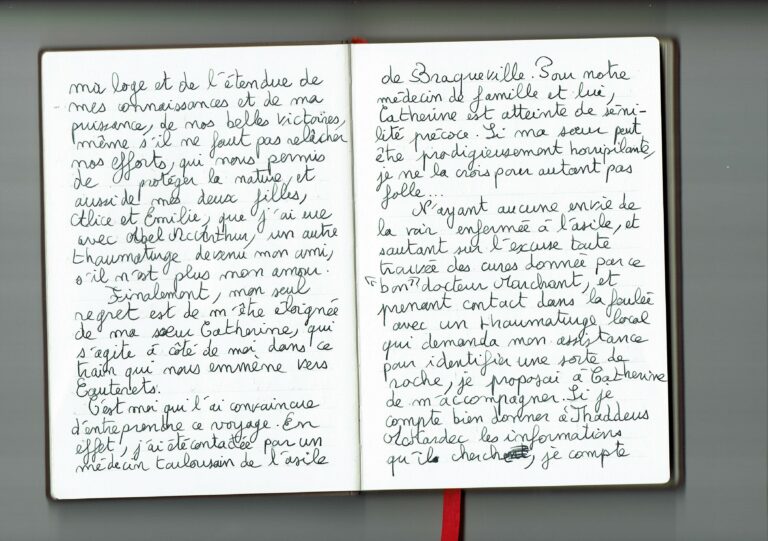 ma loge et de l'étendue de
mes connaissances et de ma
puissance, de nos belles victoires,
même s'il ne faut pas relâcher
nos efforts, qui nous permis
de protéger la nature, et
aussi de mes deux filles,
Alice et Emilie, que j'ai eue
avec Abel McArthur, un autre
thaumaturge devenu mon ami,
s'il n'est plus mon amour.
Finalement, mon seul
regret est de m'être éloignée
de ma sœur Catherine, qui
s'agite à côté de moi dans ce
train qui nous emmène vers
Cauterets.
C'est moi qui l'ai convaincue
d'entreprendre ce voyage. En
effet, j'ai été contactée par un
médecin toulousain de l'asile
de Braqueville. Pour notre
médecin de famille et lui,
Catherine est atteinte de séni-
lité précoce. Si ma sœur peut
être prodigieusement horripilante,
je ne la crois pour autant pas
folle...
N'ayant aucune envie de
la voir enfermée à l'asile, et
sautant sur l'excuse toute
trouvée des cures donnée par ce
"bon" docteur Marchant, et
prenant contact dans la foulée
avec un thaumaturge local
qui demanda mon assistance
pour identifier une sorte de
roche, je proposai à Catherine
de m'accompagner. Si je
compte bien donner à Thaddeus
les informations
qu'il cherch, je compte